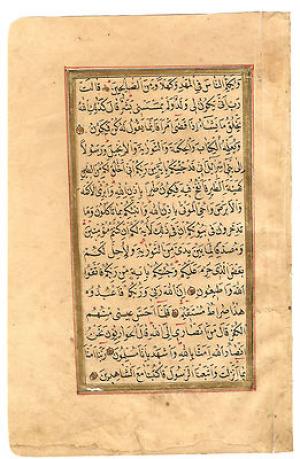 وَيُكَلِّمُ النَّاسَ فِي الْمَهْدِ وَكَهْلًا وَمِنَ الصَّالِحِينَ قَالَتْ
رَبِّ اَنّٰى يَكُونُ لِي وَلَدٌ وَلَمْ يَمْسَسْنِي بَشَرٌ قَالَ كَذٰلِكِ اللهُ
يَخْلُقُ مَا يَشَاءُ اِذَا قَضٰى اَمْرًا فَاِنَّمَا يَقُولُ لَهُ كُنْ فَيَكُونُ
وَيُعَلِّمُهُ الْكِتَابَ وَالْحِكْمَةَ وَالتَّوْرٰيةَ وَالْاِنْجِيلَ وَرَسُولًا
اِلٰى بَنِي اِسْرَائِيلَ اَنِّي قَدْ جِئْتُكُمْ بِاٰيَةٍ مِنْ رَبِّكُمْ اَنِّي اَخْلُقُ لَكُمْ مِنَ الطِّينِ
كَهَيْئَةِ الطَّيْرِ فَاَنْفُخُ فِيهِ فَيَكُونُ طَيْرًا بِاِذْنِ اللهِ وَاُبْرِئُ الْاَكْمَهَ
وَالْاَبْرَصَ وَاُحْيِ الْمَوْتٰى بِاِذْنِ اللهِ وَاُنَبِّئُكُمْ بِمَا تَأْكُلُونَ وَمَا
تَدَّخِرُونَ فِي بُيُوتِكُمْ اِنَّ فِي ذٰلِكَ لَاٰيَةً لَكُمْ اِنْ كُنْتُمْ مُؤْمِنِينَ
وَمُصَدِّقًا لِمَا بَيْنَ يَدَيَّ مِنَ التَّوْرٰيةِ وَلِاُحِلَّ لَكُمْ
بَعْضَ الَّذِي حُرِّمَ عَلَيْكُمْ وَجِئْتُكُمْ بِاٰيَةٍ مِنْ رَبِّكُمْ فَاتَّقُوا
اللهَ وَاَطِيعُونِ اِنَّ اللهَ رَبِّي وَرَبُّكُمْ فَاعْبُدُوهُ
هٰذَا صِرَاطٌ مُسْتَقِيمٌ فَلَمَّا اَحَسَّ عِيسٰى مِنْهُمُ
الْكُفْرَ قَالَ مَنْ اَنْصَارِي اِلَى اللهِ قَالَ الْحَوَارِيُّونَ نَحْنُ
اَنْصَارُ اللهِ اٰمَنَّا بِاللهِ وَاشْهَدْ بِاَنَّا مُسْلِمُونَ رَبَّنَا اٰمَنَّا
بِمَا اَنْزَلْتَ وَاتَّبَعْنَا الرَّسُولَ فَاكْتُبْنَا مَعَ الشَّاهِدِينَ